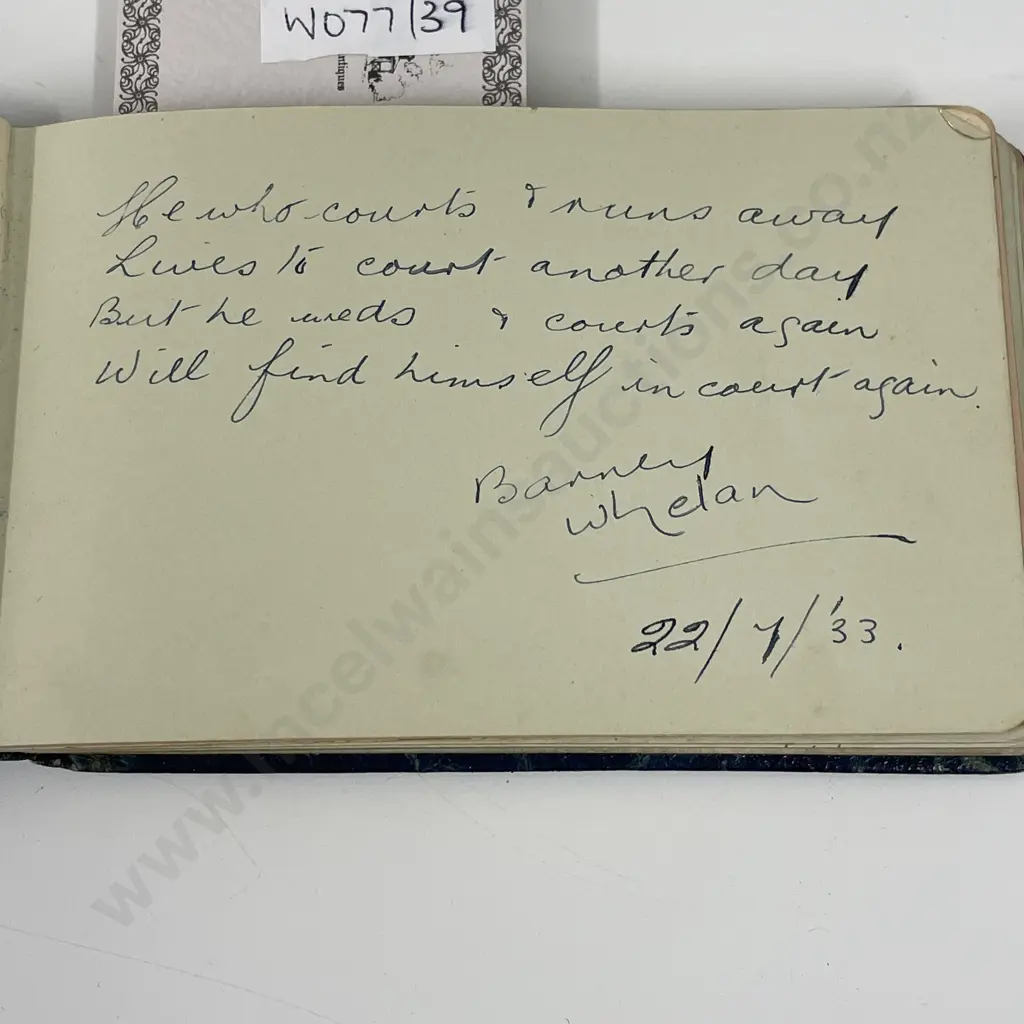 W077/39
ntiques
He who courts & runs away
Lives to court another day
But he weds & courts again
Will find himself in court again.
Barney
Whelan
22/7/'33.
www.incelwainsauctions.co.nz